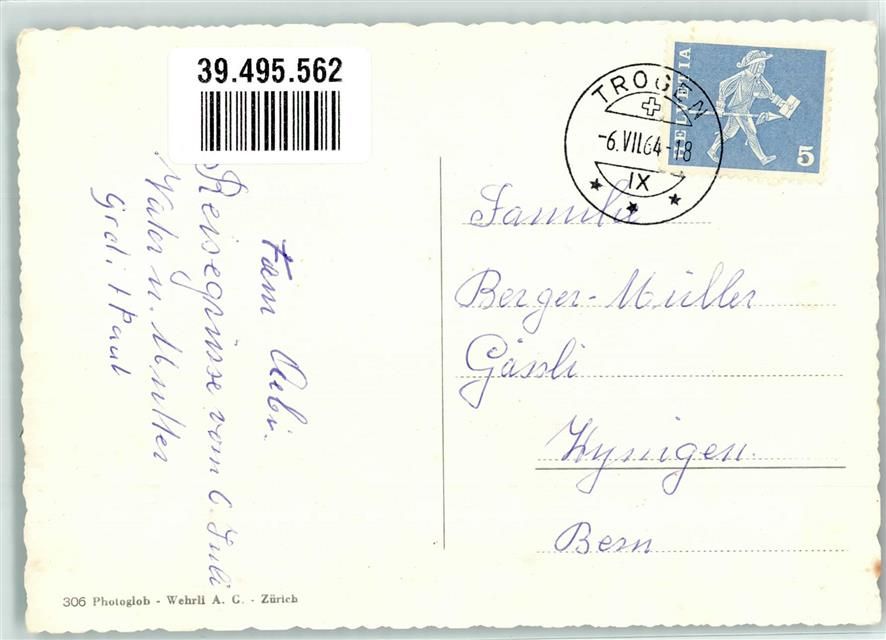 39.495.562
Reisegrüsse vom 6. Juli
Vater u. Mutter
Gredi + Paul
Fam
HELVETIA
5
TROGEN
-6.VII.64-18
IX
Familie
Berger-Müller
Gässli
Wynigen
Bern
306 Photoglob - Wehrli A. G. - Zürich